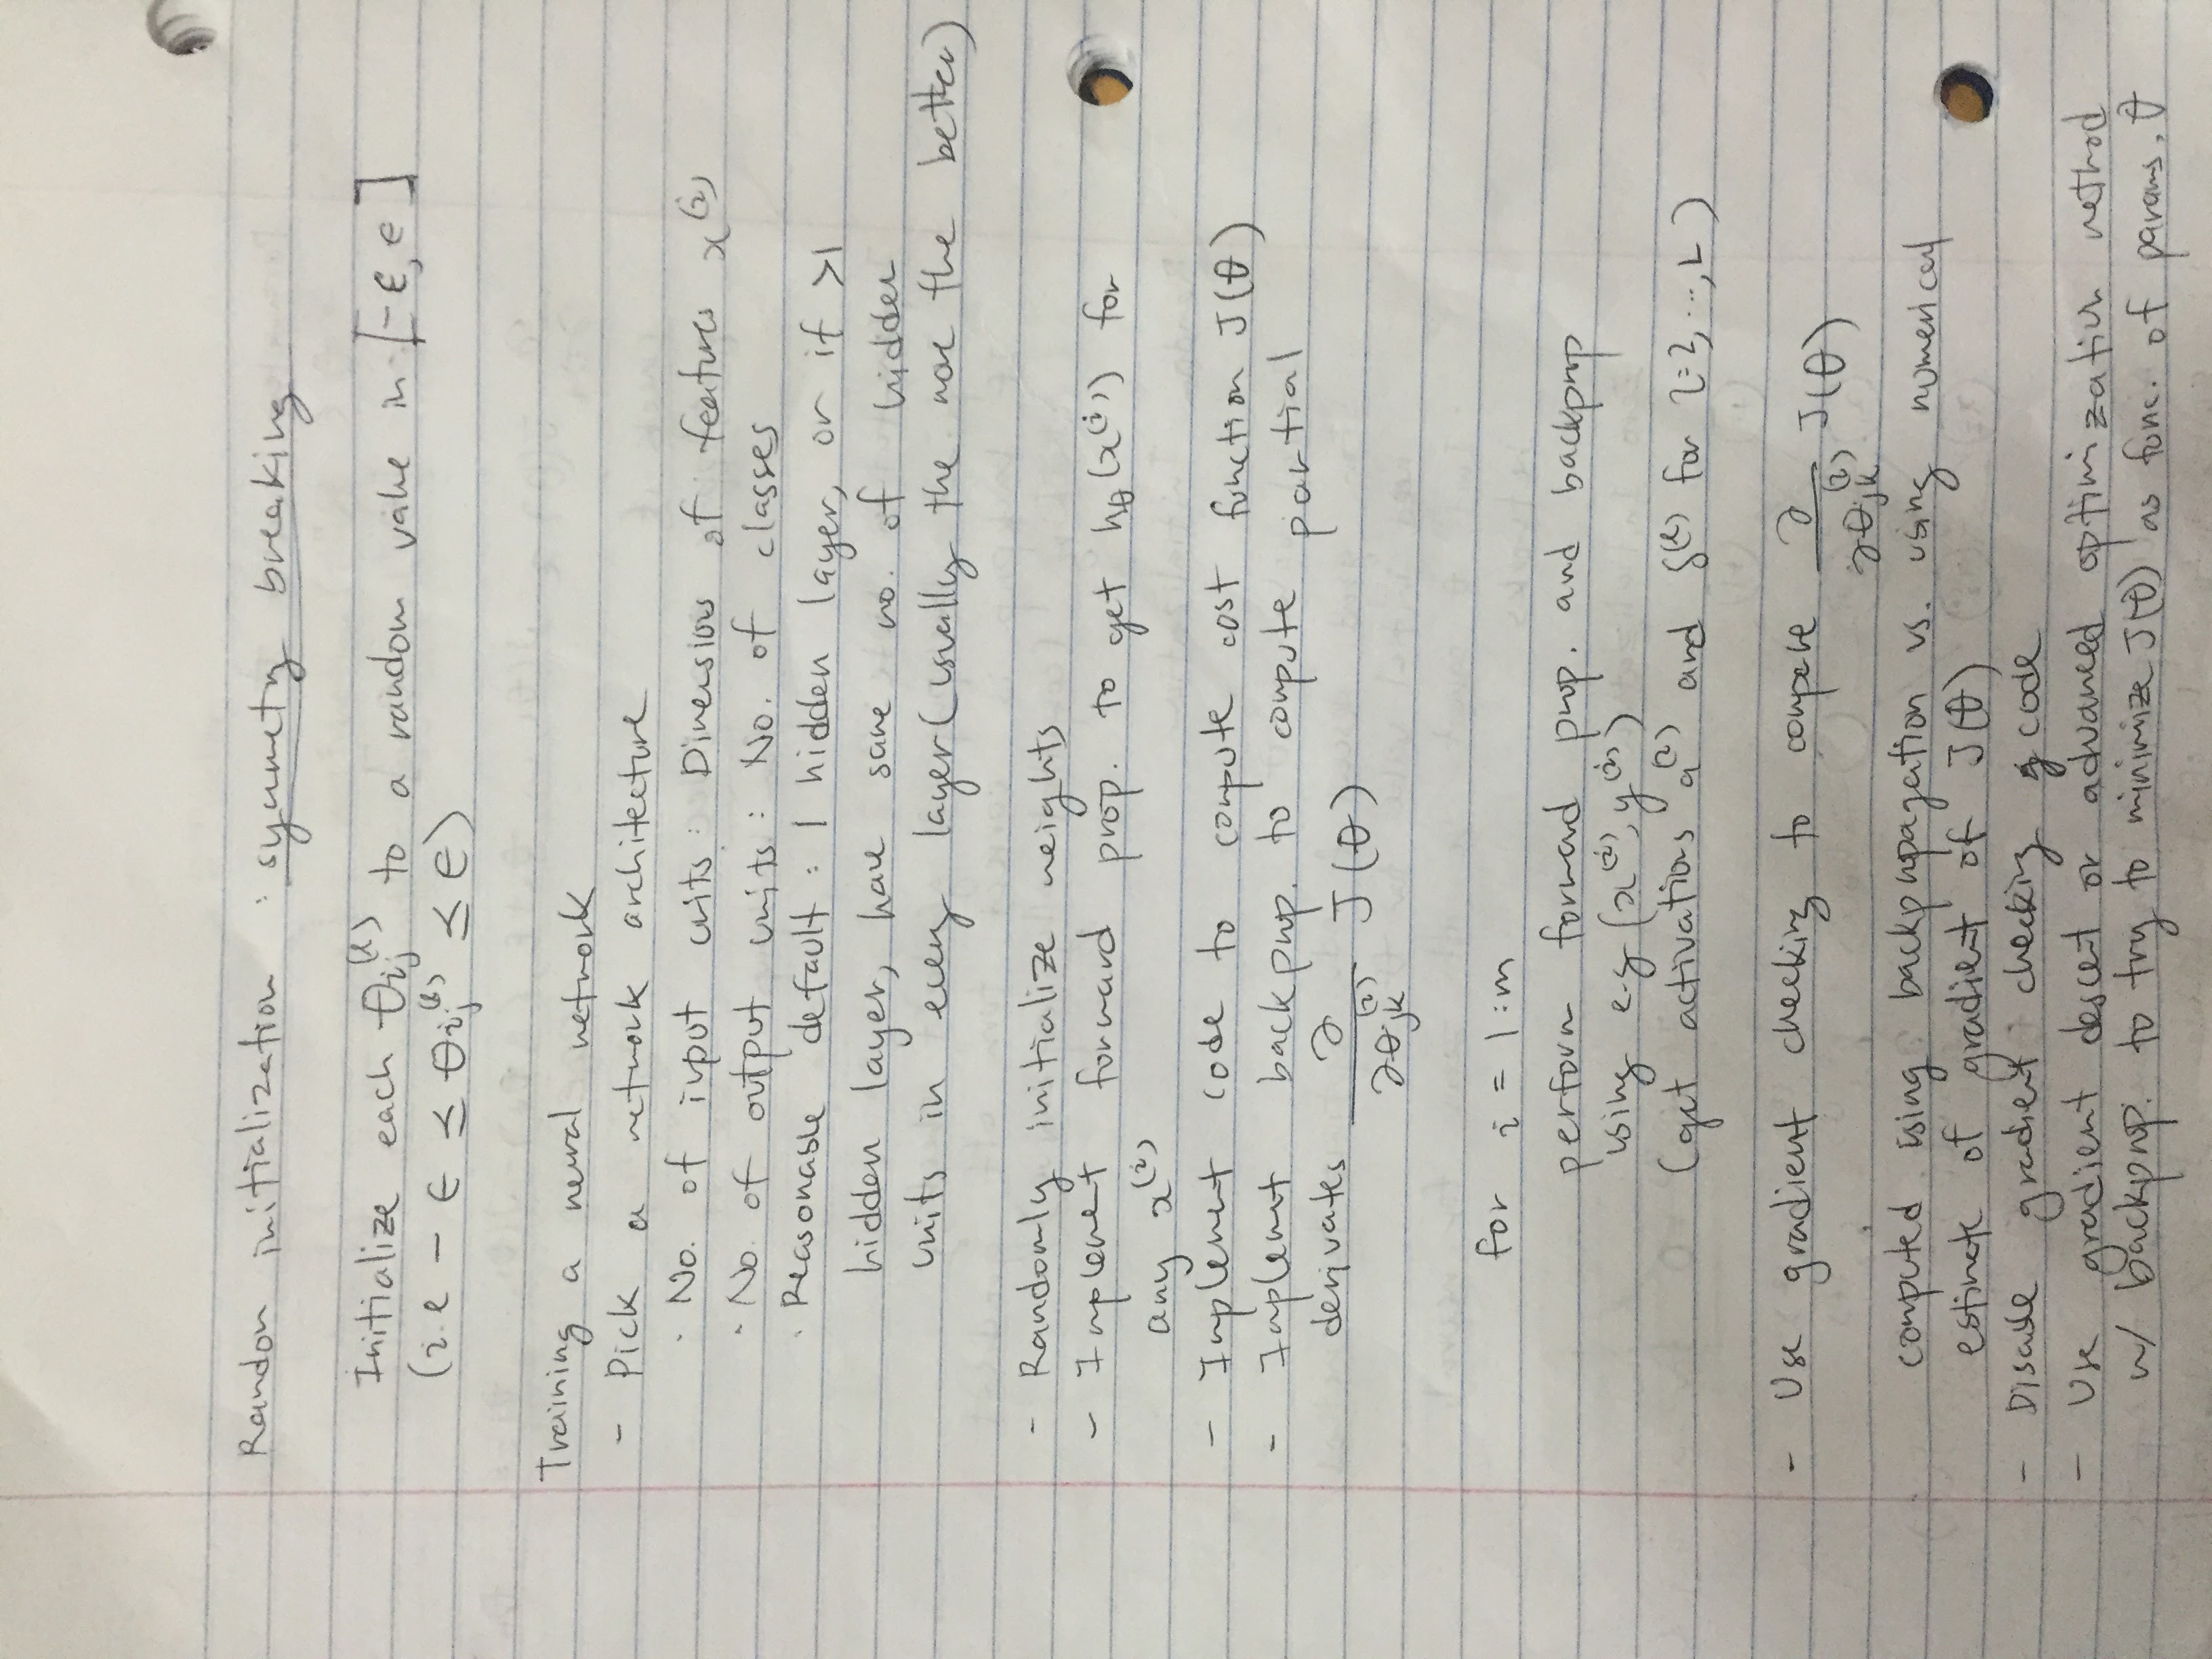 Random initialization : symmetry breaking
Initialize each θij^(l) to a random value in [-ϵ, ϵ]
(i.e - ϵ ≤ θij^(l) ≤ ϵ)
Training a neural network
- Pick a network architecture
· No. of input units : Dimensions of features x^(i)
· No. of output units : No. of classes
· Reasonable default : 1 hidden layer, or if >1
hidden layer, have same no. of hidden
units in every layer (usually the more the better)
- Randomly initialize weights
- Implement forward prop. to get hθ(x^(i)) for
any x^(i)
- Implement code to compute cost function J(θ)
- Implement backprop. to compute partial
derivates ∂/∂θjk^(l) J(θ)
for i = 1:m
perform forward prop. and backprop
using e.g (x^(i), y^(i))
(get activations a^(l) and δ^(l) for l=2, ..., L )
- Use gradient checking to compare ∂/∂θjk^(l) J(θ)
computed using backpropagation vs. using numerical
estimate of gradient of J(θ)
- Disable gradient checking code
- Use gradient descent or advanced optimization method
w/ backprop. to try to minimize J(θ) as func. of params. θ